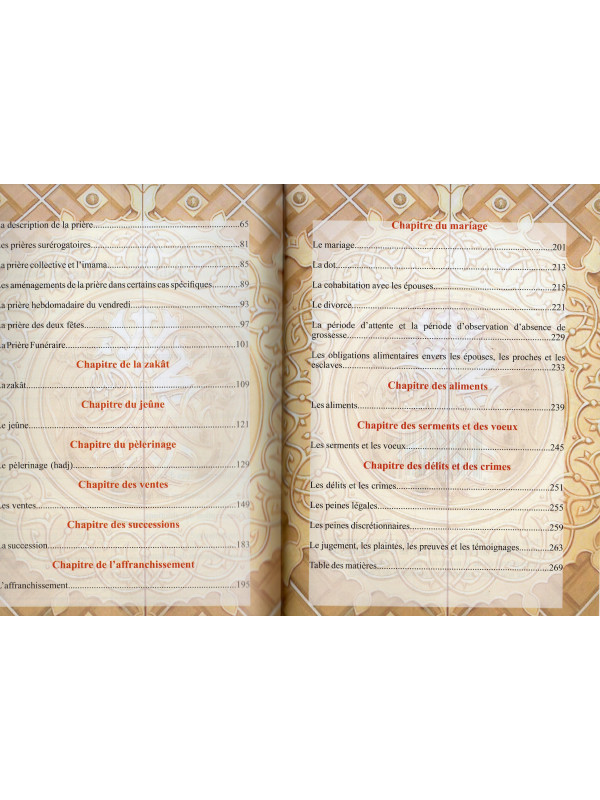 a description de la prière......65
es prières surérogatoires......81
a prière collective et l'imama......85
es aménagements de la prière dans certains cas spécifiques......89
a prière hebdomadaire du vendredi......93
a prière des deux fêtes......97
a Prière Funéraire......101
Chapitre de la zakât
a zakât......109
Chapitre du jeûne
e jeûne......121
Chapitre du pèlerinage
e pèlerinage (hadj)......129
Chapitre des ventes
es ventes......149
Chapitre des successions
a succession......183
Chapitre de l'affranchissement
'affranchissement......195
Chapitre du mariage
Le mariage......201
La dot......213
La cohabitation avec les épouses......215
Le divorce......221
La période d'attente et la période d'observation d'absence de
grossesse......229
Les obligations alimentaires envers les épouses, les proches et les
esclaves......233
Chapitre des aliments
Les aliments......239
Chapitre des serments et des voeux
Les serments et les voeux......245
Chapitre des délits et des crimes
Les délits et les crimes......251
Les peines légales......255
Les peines discrétionnaires......259
Le jugement, les plaintes, les preuves et les témoignages......263
Table des matières......269